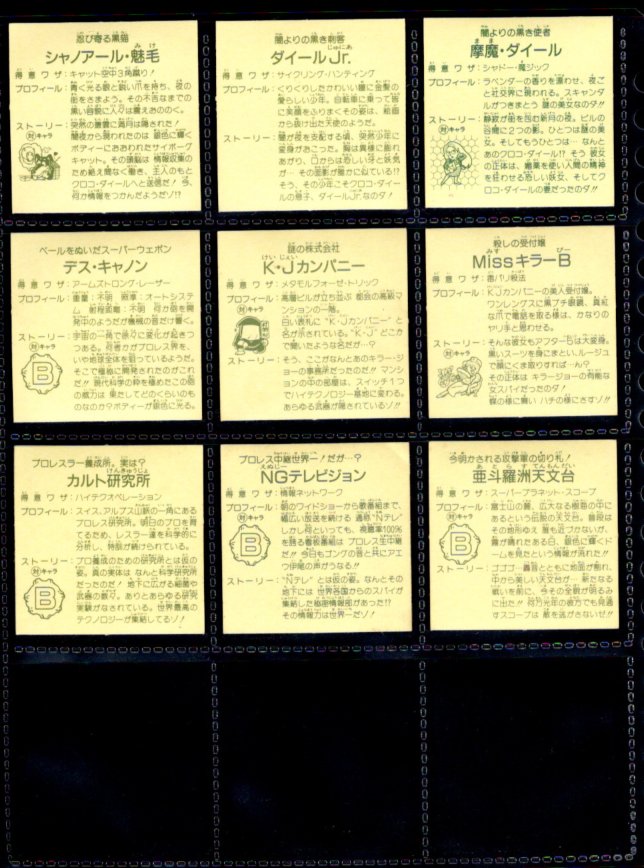 忍び寄る黒猫
シャノアール・魅毛
得意ワザ：キャット空中3角蹴り！
プロフィール：青く光る眼と鋭い爪を持ち、夜の
街をさまよう。その不吉なまでの
黒い容貌に人々は震えあののく。
ストーリー：突然の暗雲に満月は隠された！
対キャラ
闇夜から現われたのは 銀色に輝く
ボディーにおおわれたサイボーグ
キャット。その頭脳は 情報収集の
ため絶え間なく働き、主人のもと
クロコ・ダイールへと送信だ！今、
何か情報をつかんだようだゾ!?
闇よりの黒き刺客
じゅにあ
ダイールJr.
得意ワザ：サイクリング・ハンティング
プロフィール：くりくりしたかわいい瞳に金髪の
愛らしい少年。自転車に乗って皆
に笑顔をふりまくその姿は、絵画
から抜け出た天使のようだ。
ストーリー：闇が夜を支配する頃、突然少年に
変身がおこった。胸は異様に膨れ
あがり、口からは恐しい牙と妖気
が… その面影が誰かに似ている!?
そう、その少年こそクロコ・ダイー
ルの息子、ダイールJr.なのダ！
闇よりの黒き使者
まま
摩魔・ダイール
得意ワザ：シャドー・魔ジック
プロフィール：ラベンダーの香りを漂わせ、夜ご
と社交界に現われる。スキャンダ
ルがつきまとう 謎の美女なのダ!!
ストーリー：静寂が街を包む新月の夜。ビルの
対キャラ
谷間に2つの影。ひとつは謎の美
女。そしてもうひとつは… なんと
あのクロコ・ダイール!? そう 彼女
の正体は、媚薬を使い人間の精神
を狂わせる恐しい妖女、そしてク
ロコ・ダイールの妻だったのダ!!
ベールをぬいだスーパーウェポン
デス・キャノン
得意ワザ：アームストロング・レーザー
プロフィール：重量：不明 照準：オートシステ
ム 射程距離：不明 何か砲を開
発中のようだが機械の音だけ響く。
ストーリー：宇宙の一角で徐々に変化が起きつ
対キャラ
B
つある。何者かがプロレス界を、
いや地球全体を狙っているようだ。
そこで極秘に開発されたのがこれ
だ!! 現代科学の粋を極めたこの砲
の威力は 果たしてどのくらいのも
のなのか?ボディーが銀色に光る。
謎の株式会社
けい じぇい
K・Jカンパニー
得意ワザ：メタモルフォーゼ・トリック
プロフィール：高層ビルが立ち並ぶ 都会の高級マ
ンションの一階。
対キャラ
白い表札に“K・Jカンパニー”と
名が示されている。“K・J”どこか
で聞いたような名だが…？
ストーリー：そう、ここがなんとあのキラー・ジ
ョーの事務所だったのだ!! マンシ
ョンの中の部屋は、スイッチ1つ
でハイテクノロジー基地に変わる。
あらゆる武器が隠されているゾ!!
殺しの受付嬢
みす びー
MissキラーB
得意ワザ：毒バリ殺法
プロフィール：K.Jカンパニーの美人受付嬢。
ワンレングスに黒ブチ眼鏡、真紅
な爪で電話を取る様は、かなりの
やり手と思わせる。
ストーリー：そんな彼女もアフター5は大変身。
対キャラ
黒いスーツを身にまとい、ルージュ
で顔にくま取りすれば…ん?
その正体は キラージョーの有能な
女スパイだったのダ！
蝶の様に舞い ハチの様にさすゾ!!
プロレスラー養成所。実は？
けんきゅうじょ
カルト研究所
得意ワザ：ハイテクオペレーション
プロフィール：スイス、アルプス山脈の一角にある
プロレス研究所。明日のプロを育
てるため、レスラー達を科学的に
分析し、特訓が続けられている。
ストーリー：プロ養成のための研究所とは仮の
対キャラ
B
姿。真の実体は なんと科学研究所
だったのだ！ 地下に広がる細菌や
武器の数々。ありとあらゆる研究
実験がなされている。世界最高の
テクノロジーが集結してるゾ！
プロレス中継世界一！だが…？
えぬじー
NGテレビジョン
得意ワザ：情報ネットワーク
プロフィール：朝のワイドショーから歌番組まで、
対キャラ
B
幅広い放送を続ける 通称“Nテレ”
しかし何といっても、視聴率100%
を誇る看板番組は プロレス生中継
だ!! 今日もゴングの音と共にアエ
つ伊尾の声がうなる!!
ストーリー：“Nテレ”とは仮の姿。なんとその
地下には 世界各国からのスパイが
集結した極秘情報部があった!?
その情報力は世界一だゾ！
今明かされる攻撃軍の切り札！
あとらすてんもんだい
亜斗羅洲天文台
得意ワザ：スーパープラネット・スコープ
プロフィール：富士山の麓、広大なる樹海の中に
対キャラ
B
あるという伝説の天文台。普段は
その地形ゆえ 誰も近づかないが、
霧が晴れたある日、銀色に輝くド
ームを見たという情報が流れた!!
ストーリー：ゴゴゴー轟音とともに地面が割れ、
中から美しい天文台が… 新たなる
戦いを前に、今その全貌が明るみ
に出た!! 何万光年の彼方でも見通
すスコープは 敵を逃がさないぜ!!